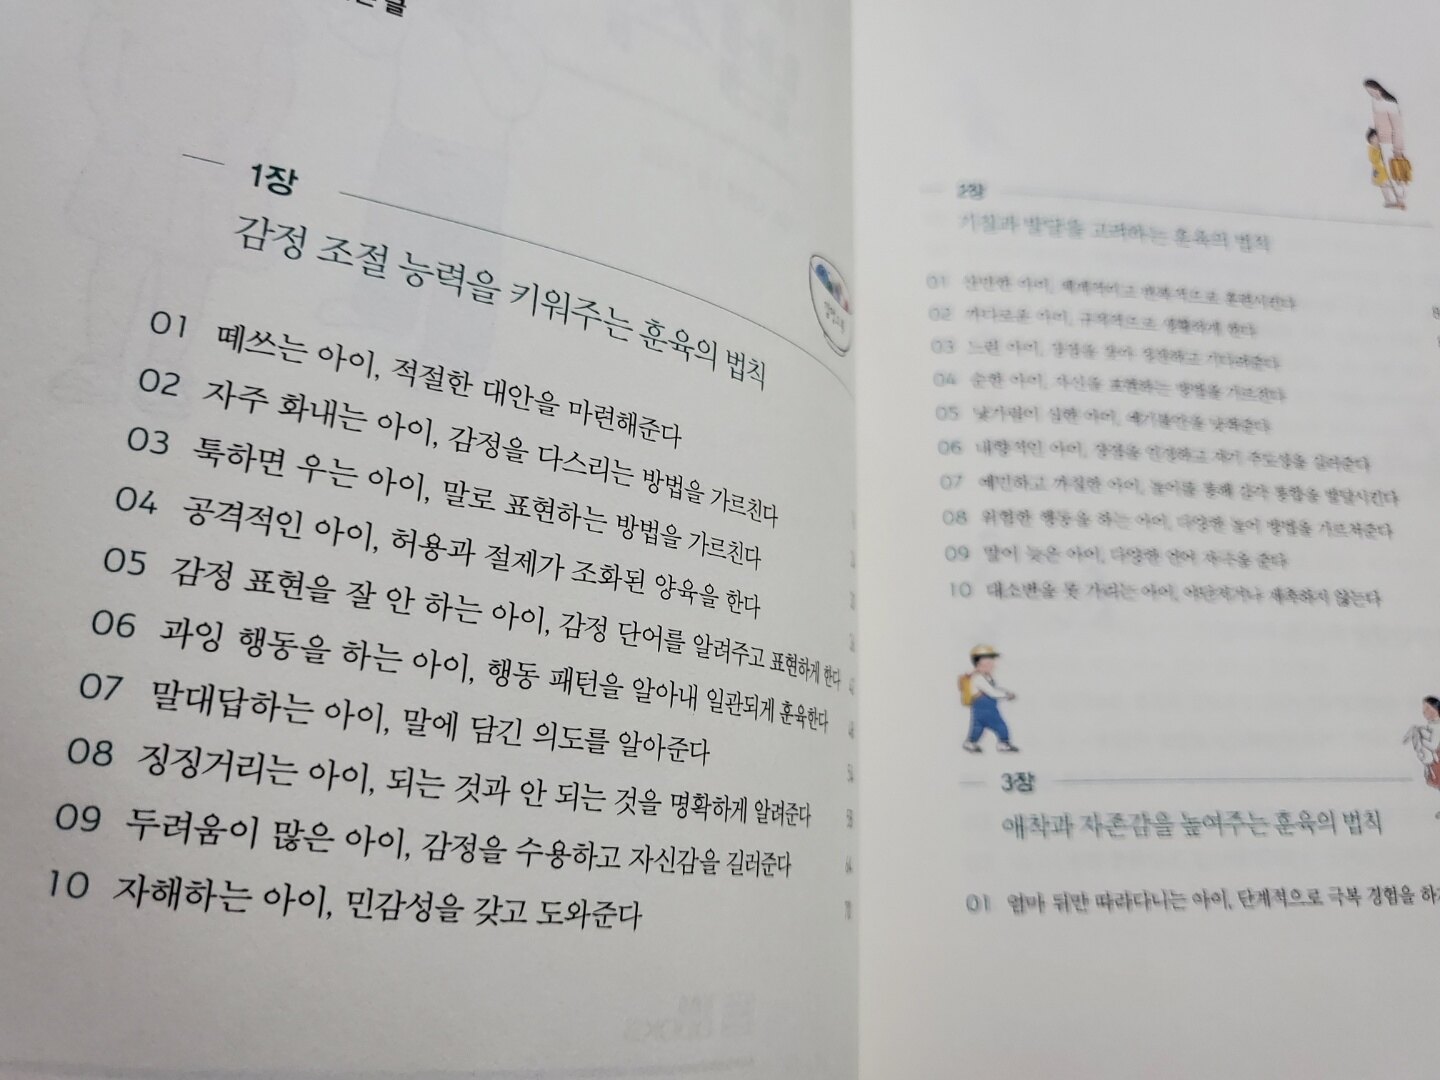 1장
감정 조절 능력을 키워주는 훈육의 법칙
01 떼쓰는 아이, 적절한 대안을 마련해준다
02 자주 화내는 아이, 감정을 다스리는 방법을 가르친다
03 툭하면 우는 아이, 말로 표현하는 방법을 가르친다
04 공격적인 아이, 허용과 절제가 조화된 양육을 한다
05 감정 표현을 잘 안 하는 아이, 감정 단어를 알려주고 표현하게 한다
06 과잉 행동을 하는 아이, 행동 패턴을 알아내 일관되게 훈육한다
07 말대답하는 아이, 말에 담긴 의도를 알아준다
08 징징거리는 아이, 되는 것과 안 되는 것을 명확하게 알려준다
09 두려움이 많은 아이, 감정을 수용하고 자신감을 길러준다
10 자해하는 아이, 민감성을 갖고 도와준다
2장
기질과 발달을 고려하는 훈육의 법칙
01 산만한 아이, 체계적이고 반복적으로 훈련시킨다
02 까다로운 아이, 규칙적으로 생활하게 한다
03 느린 아이, 장점을 찾아 칭찬하고 기다려준다
04 순한 아이, 자신을 표현하는 방법을 가르친다
05 낯가림이 심한 아이, 애기불안을 낮춰준다
06 내향적인 아이, 장점을 인정하고 자기 주도성을 길러준다
07 예민하고 까칠한 아이, 놀이를 통해 감각 통합을 발달시킨다
08 위험한 행동을 하는 아이, 다양한 놀이 방법을 가르쳐준다
09 말이 늦은 아이, 다양한 언어 자극을 준다
10 대소변을 못 가리는 아이, 야단치거나 재촉하지 않는다
3장
애착과 자존감을 높여주는 훈육의 법칙
01 엄마 뒤만 따라다니는 아이, 단계적으로 극복 경험을